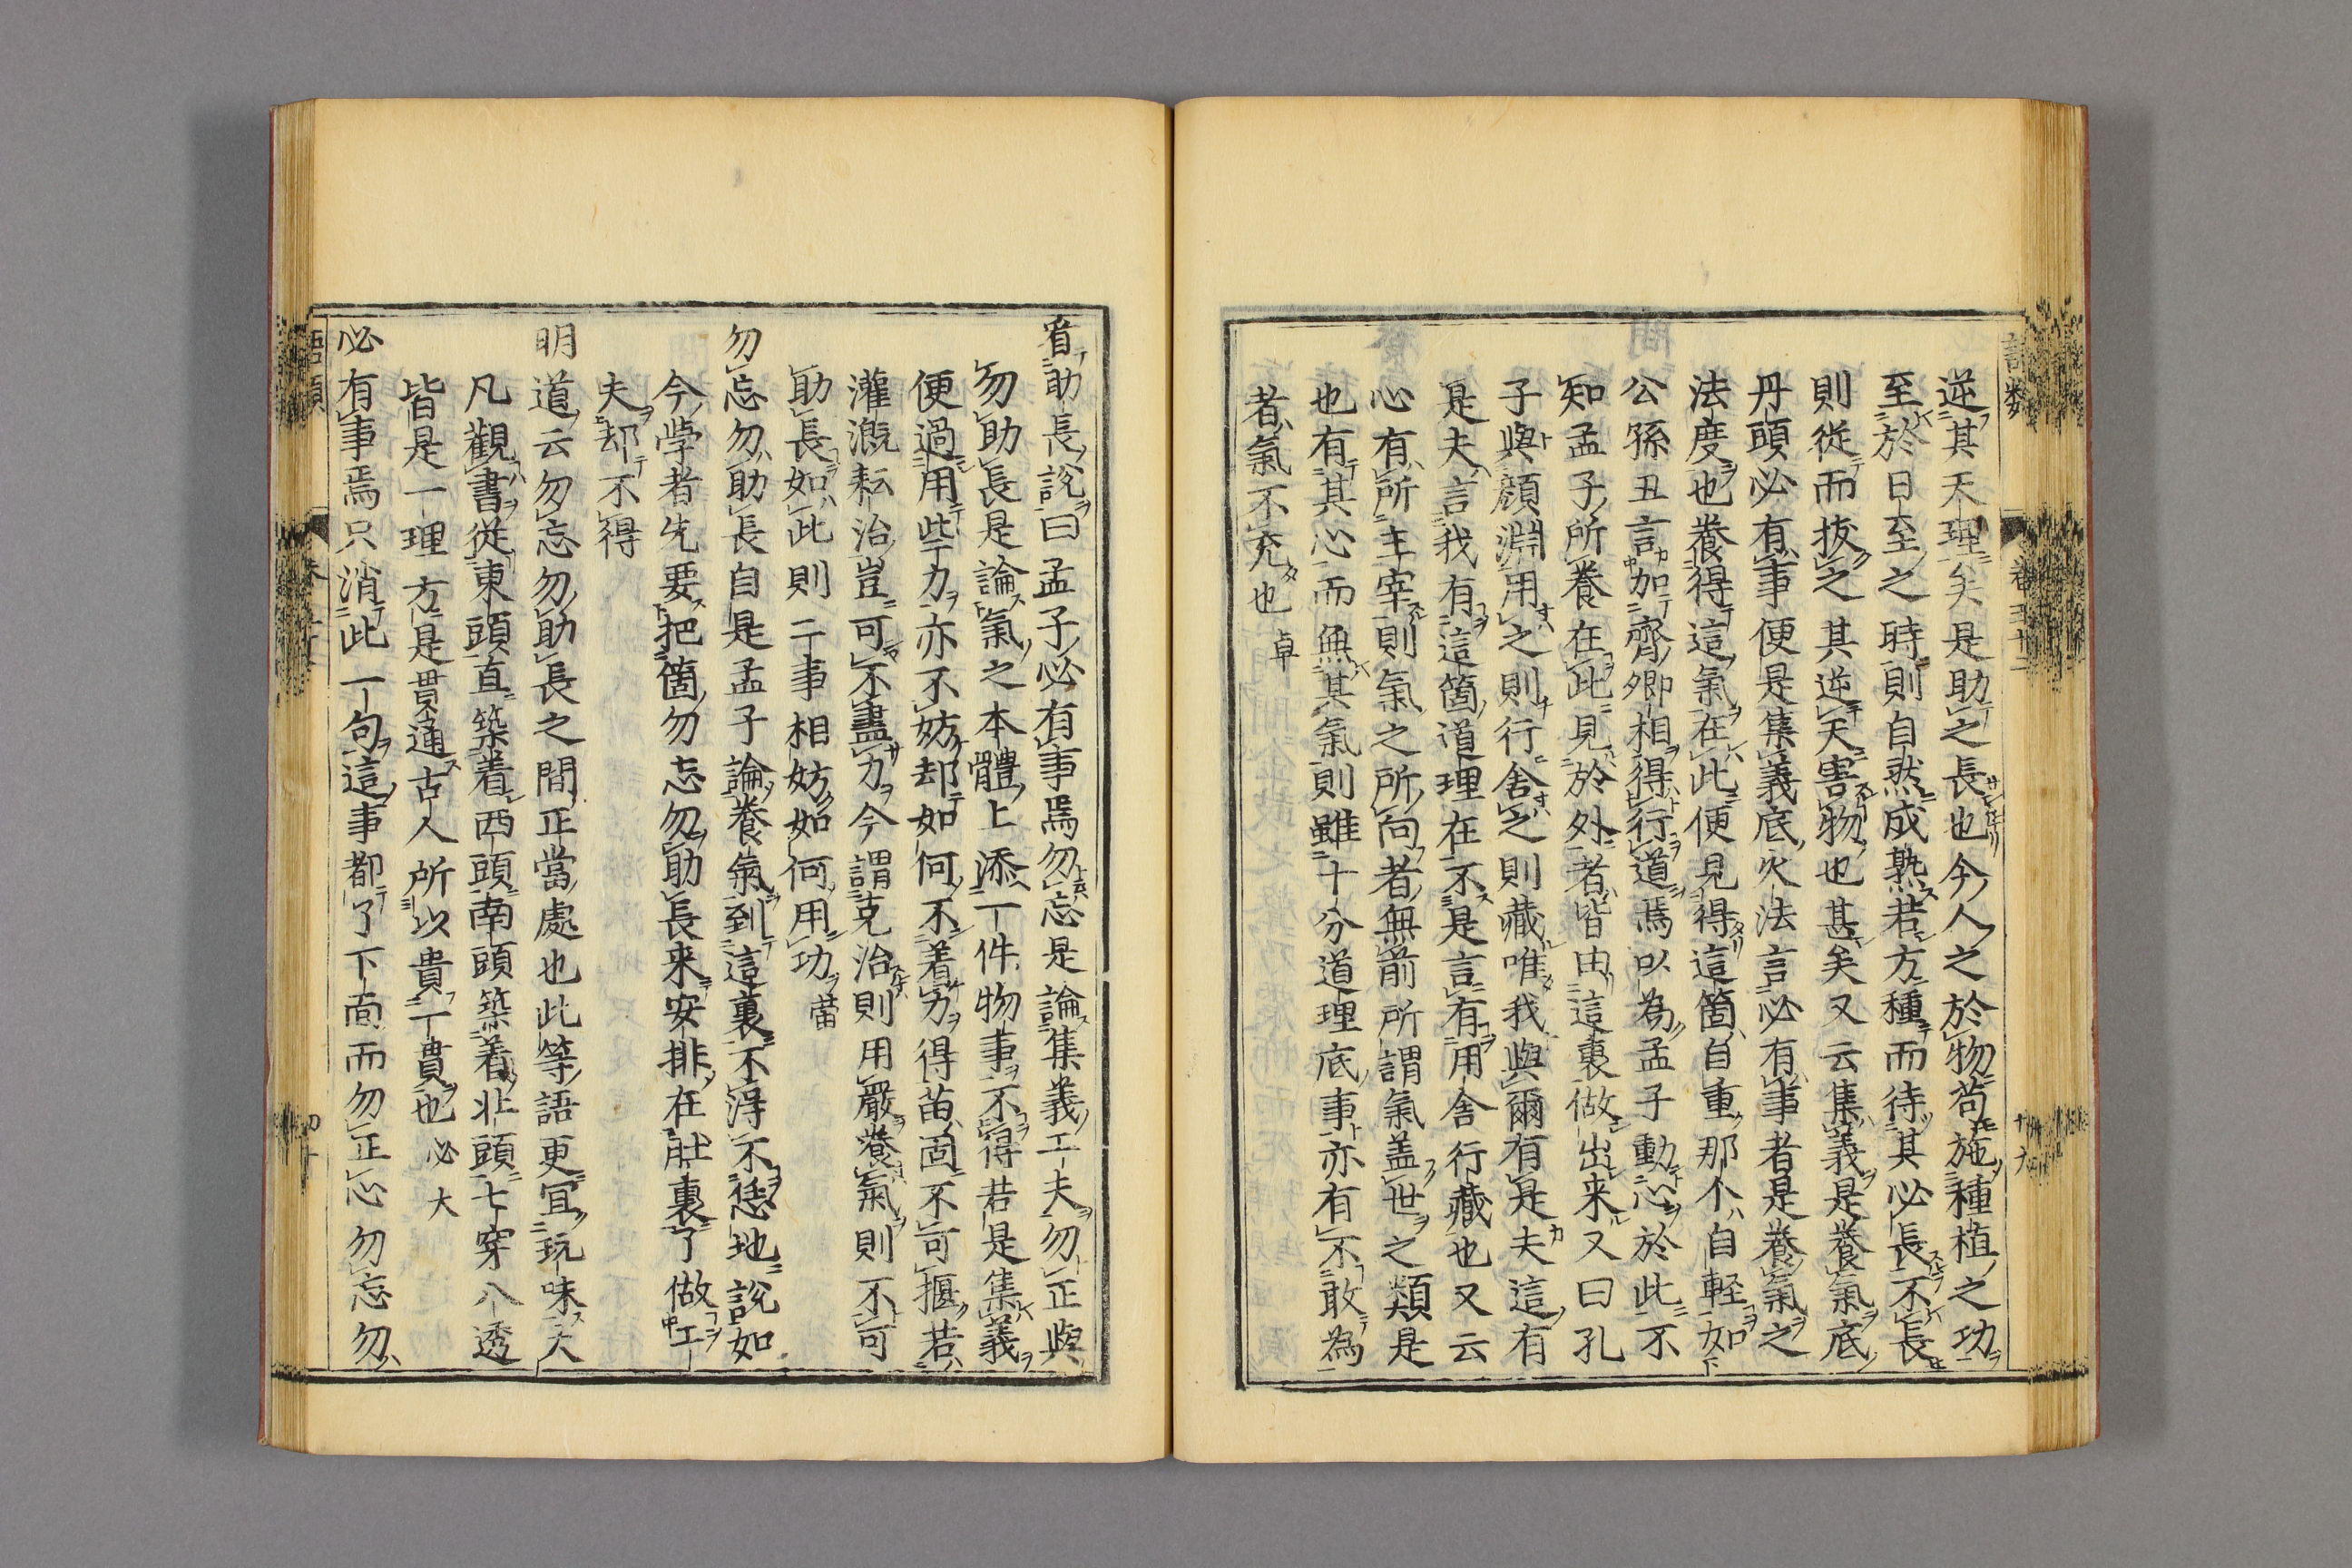 逆其天理矣是助之長也今人之於物苟施種植之功
至於日至之時則自然成熟若方種而待其必長不長
則從而拔之其逆天害物也甚矣又云集義是養氣底
丹頭必有事便是集義底火法言必有事者是養氣之
法度也養得這氣在此便見得這箇自重那个自輕如
公孫丑言加齊卿相得行道焉以為孟子動心於此不
知孟子所養在此見於外者皆由這裏做出来又曰孔
子與顔淵用之則行舍之則藏唯我與爾有是夫這有
是夫言我有這箇道理在不是言有用舍行藏也又云
心有所主宰則氣之所向者無前所謂氣盖世之類是
也有其心而無其氣則雖十分道理底事亦有不敢為
者氣不充也 卓
看助長說曰孟子必有事焉勿忘是論集義工夫勿正與
勿助長是論氣之本體上添一件物事不得若是集義
便過用些力亦不妨却如何不着力得苗固不可揠若
灌漑耘治豈可不盡力今謂克治則用嚴養氣則不可
助長如此則二事相妨如何用功 𬎼
勿忘勿助長自是孟子論養氣到這裏不得不恁地說如
今學者先要把箇勿忘勿助長来安排在肚裏了做工
夫却不得
明道云勿忘勿助長之間正當處也此等語更宜玩味大
凡觀書從東頭直築着西頭南頭築着北頭七穿八透
皆是一理方是貫通古人所以貴一貫也 必大
必有事焉只消此一句這事都了下面而勿正心勿忘勿
語類
卷五十二
十六